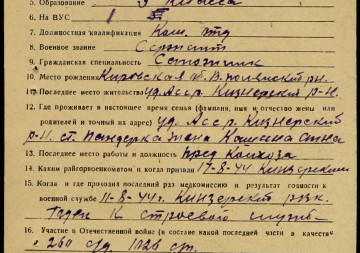 5. Образование 3 класса
6. На ВУС 1
7. Должностная квалификация Ком. отд
8. Военное звание Сержант
9. Гражданская специальность
10. Место рождения Кировская обл. В. Полянский р-н.
11. Последнее место жительства Уд. Асср. Кизнерский р-н.
12. Где проживает в настоящее время семья (фамилия, имя и отчество жены или
родителей и точный их адрес) Уд. Асср. Кизнерский
р-н ст. Жена Анна
13. Последнее место работы и должность пред Колхоза
14. Каким райгорвоенкоматом и когда призван 17-8-44 Кизнерский
15. Когда и где проходил последний раз медкомиссию и результат годности к
военной службе 11-8-44г. Кизнерский рвк.
Годен К строевой службе
16. Участие в Отечественной войне (в составе какой последней части в качестве
260 сд 1026 сп.